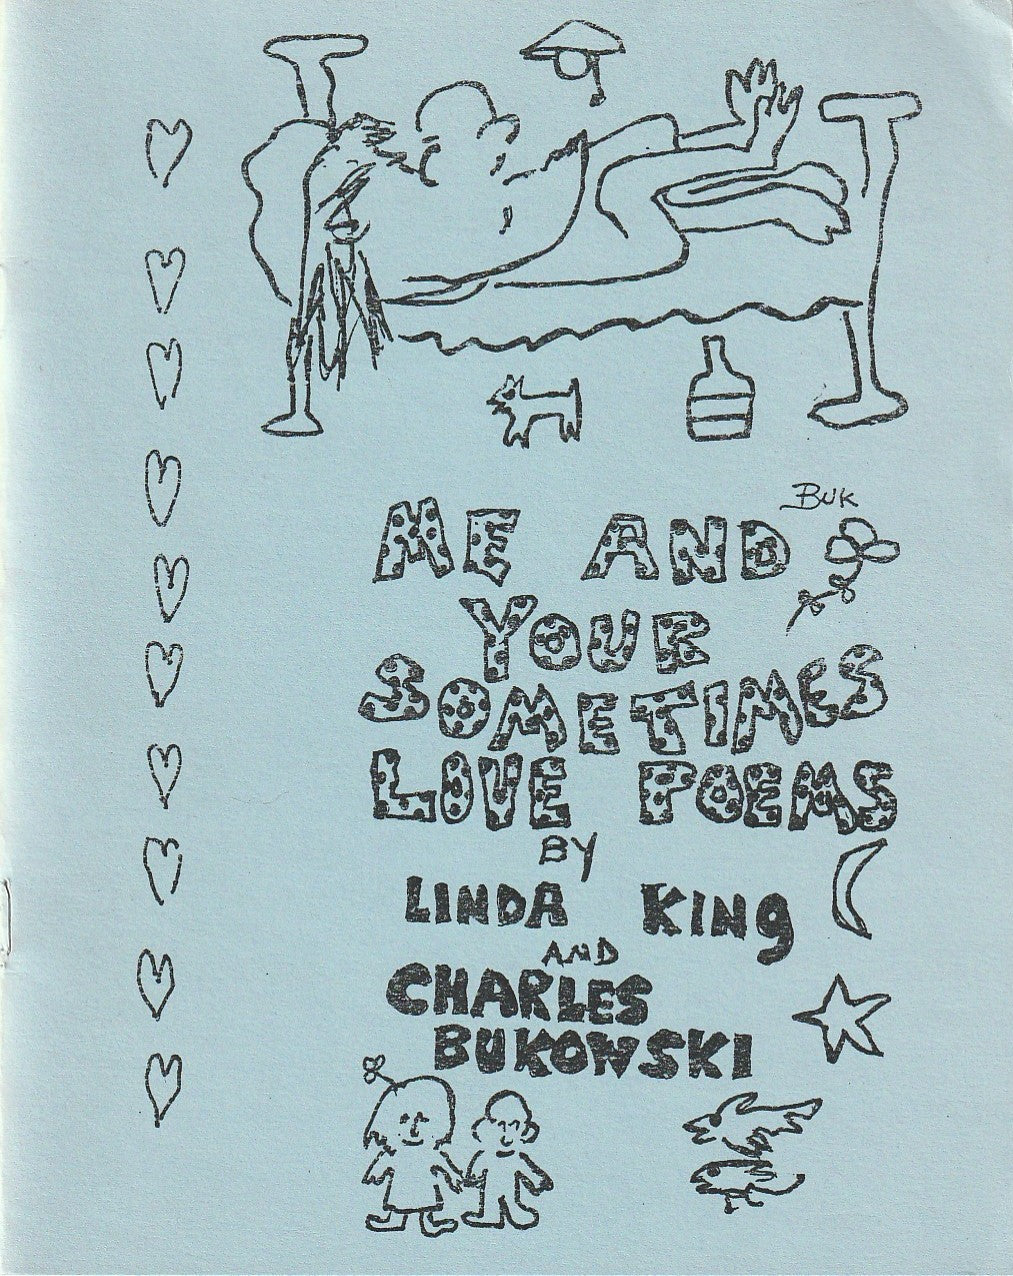 BUK
ME AND
YOUR
SOMETIMES
LOVE POEMS
BY
LINDA KING
AND
CHARLES
BUKOWSKI